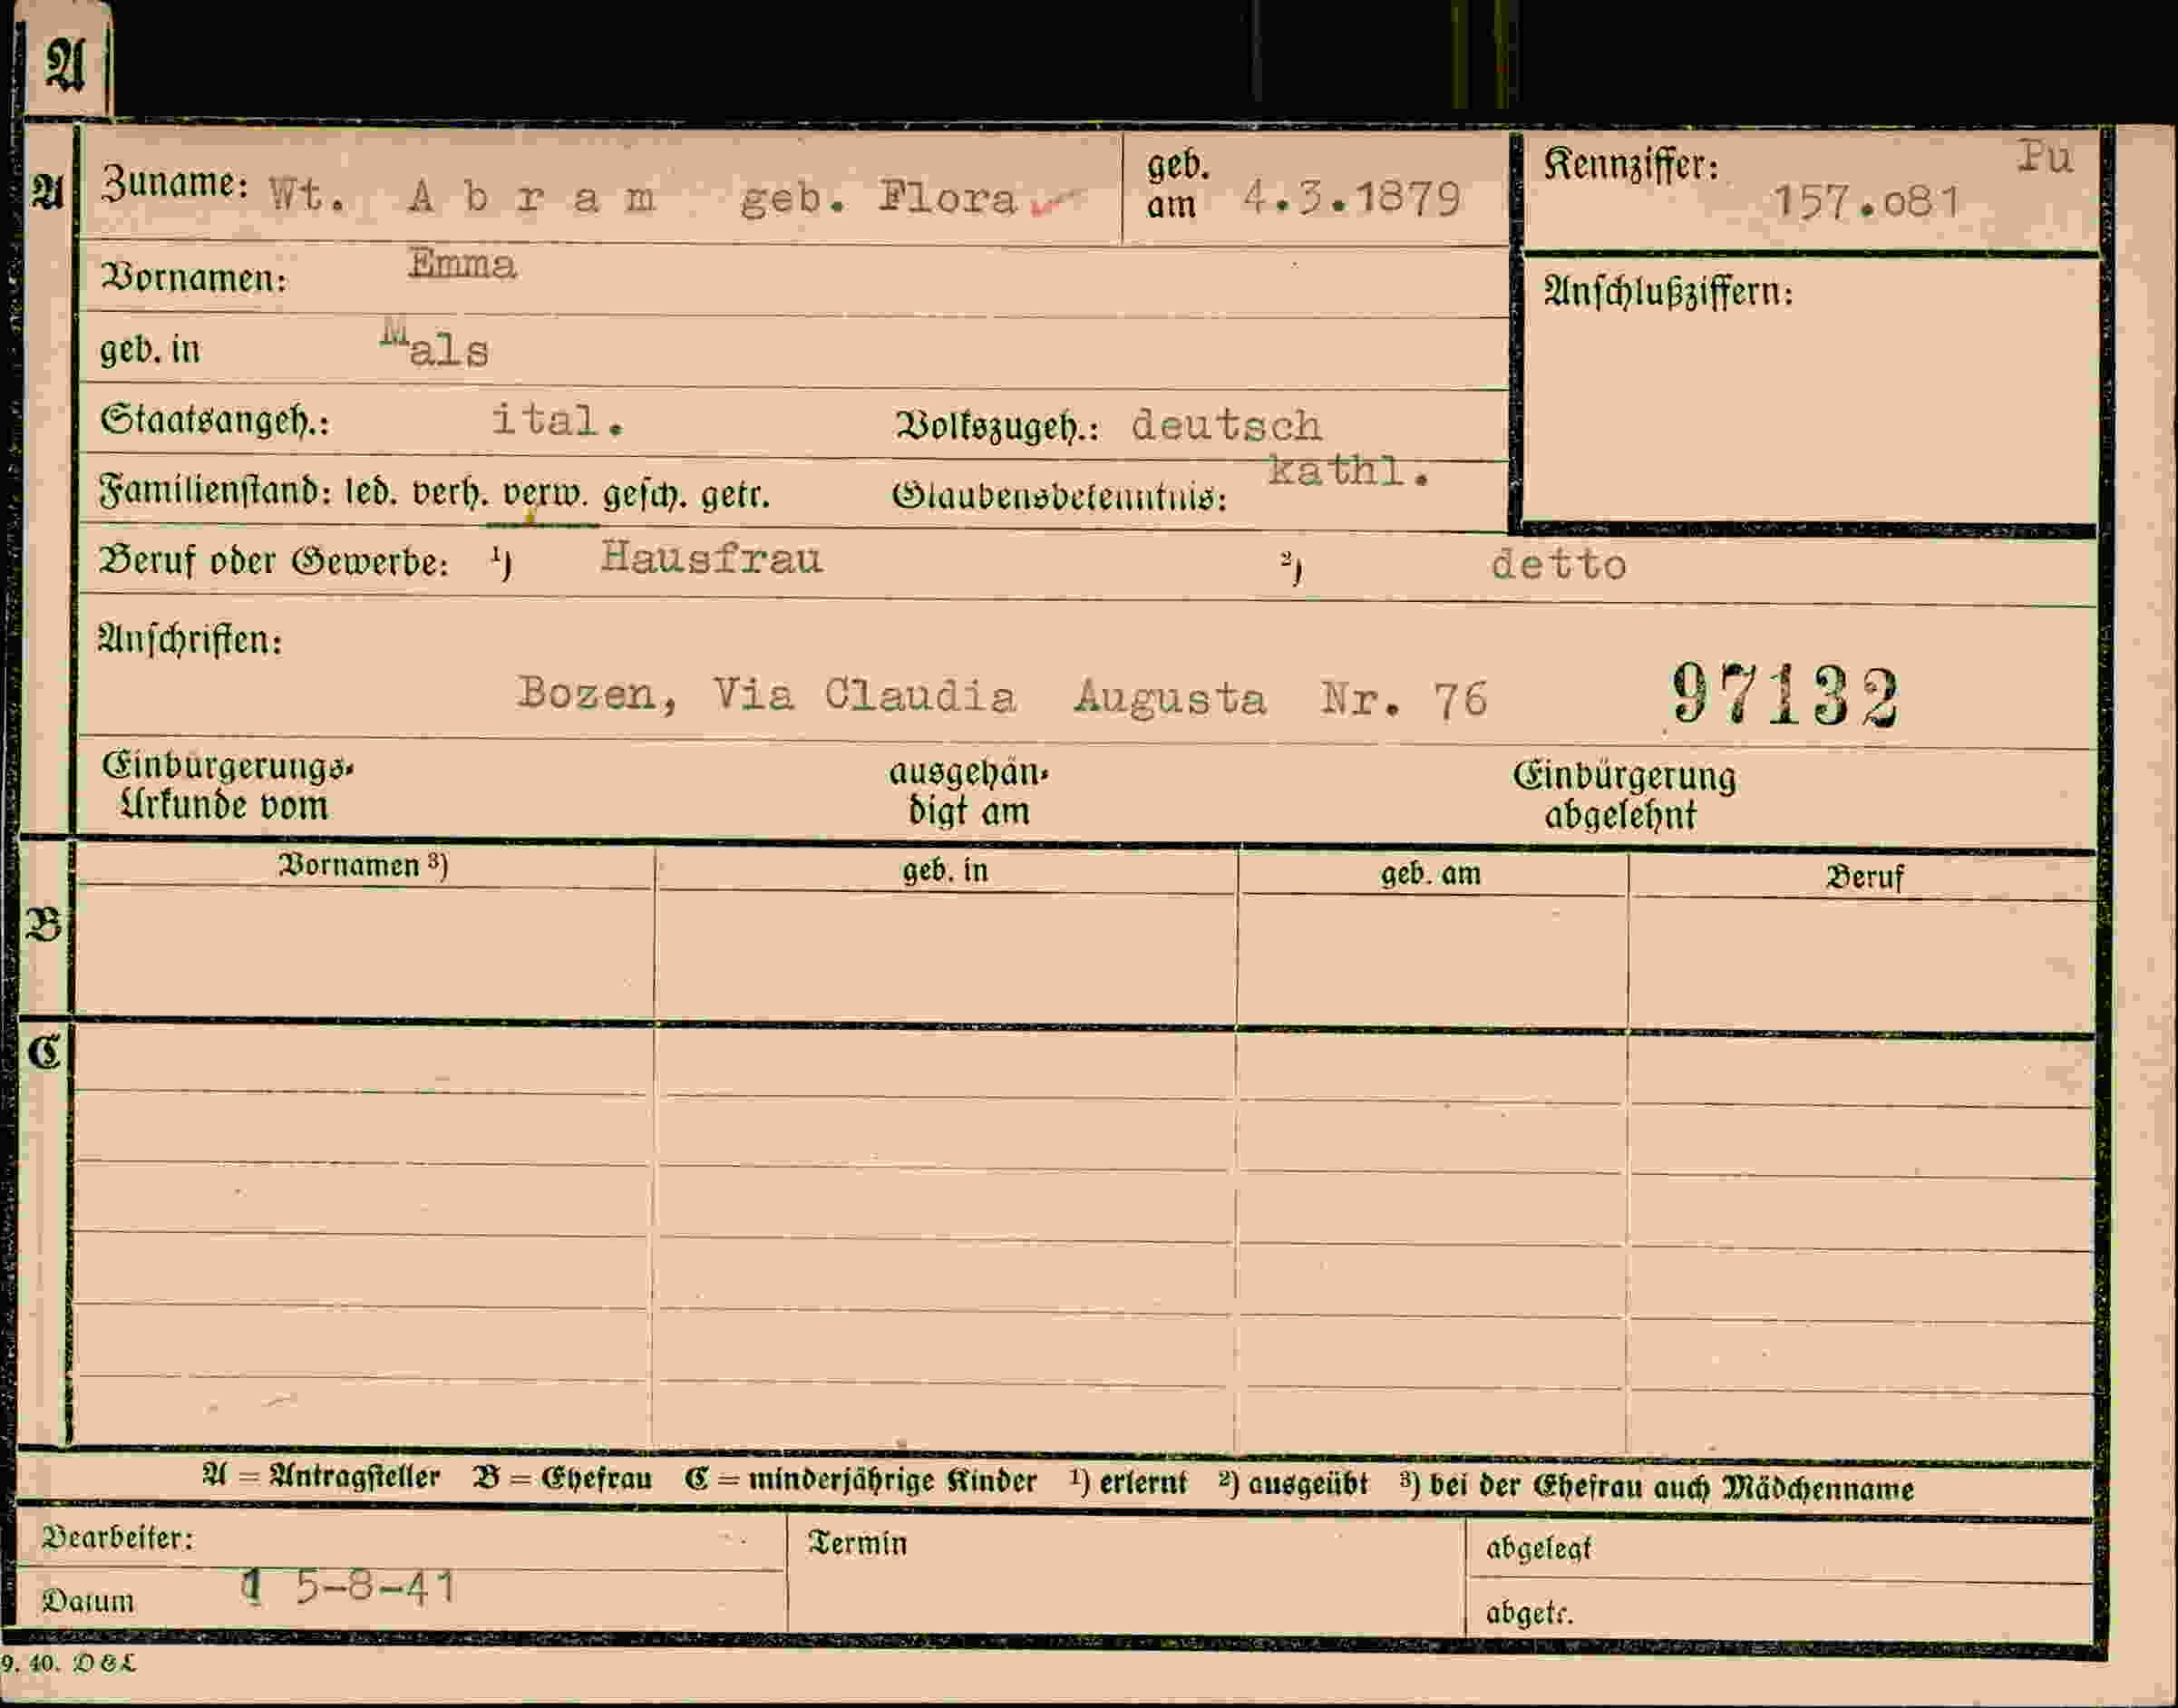 A
A Zuname: Wt. A b r a m geb. Flora geb. am 4.3.1879 Kennziffer: Pu 157.o81
Vornamen: Emma
Anschlußziffern:
geb. in Mals
Staatsangeh.: ital. Volkszugeh.: deutsch
Familienstand: led. verh. verw. gesch. getr. Glaubensbekenntnis: kathl.
Beruf oder Gewerbe: ¹) Hausfrau ²) detto
Anschriften:
Bozen, Via Claudia Augusta Nr. 76 97132
Einbürgerungs- ausgehän- Einbürgerung
Urkunde vom digt am abgelehnt
Vornamen ³) geb. in geb. am Beruf
B
C
A = Antragsteller B = Ehefrau C = minderjährige Kinder ¹) erlernt ²) ausgeübt ³) bei der Ehefrau auch Mädchenname
Bearbeiter: Termin abgelegt
Datum 1 5-8-41 abgetr.
9. 40. D & L